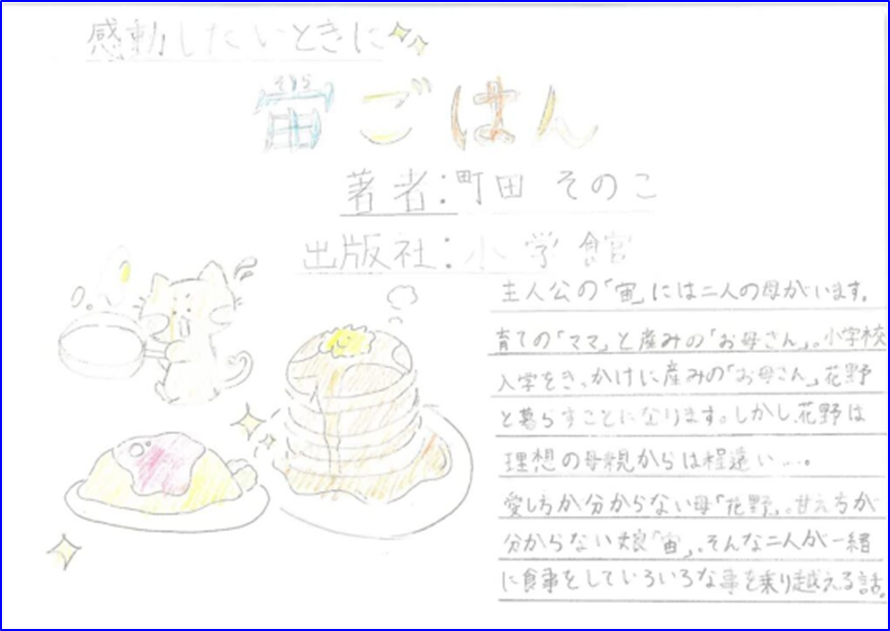 感動したいときに
そら
宙ごはん
著者:町田 そのこ
出版社:小学館
主人公の「宙」には二人の母がいます。
育ての「ママ」と産みの「お母さん」。小学校
入学をき、かけに産みの「お母さん」花野
と暮らすことになります。しかし、花野は
理想の母親からは程遠い…。
愛し方が分からない母「花野」。甘え方が
分からない娘「宙」。そんな二人が一緒
に食事をしていろいろな事を乗り越える話。